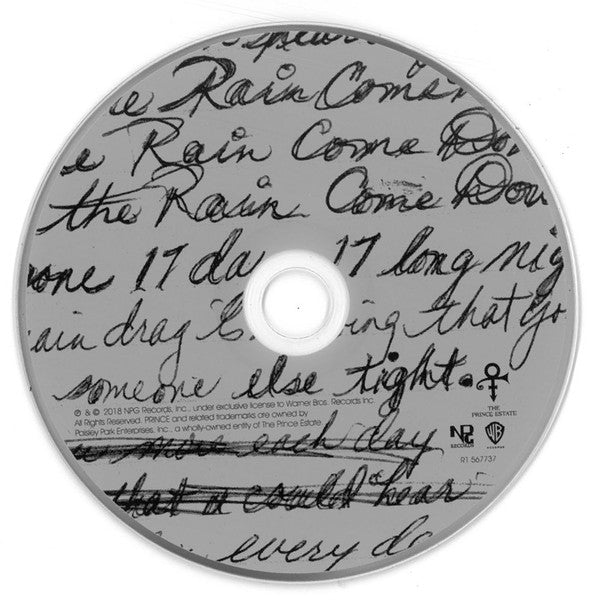 e Rain Comes
e Rain Come Dow
the Rain Come Dow
one 17 da 17 long nig
ain drag ing that go
someone else tight.
℗ & © 2018 NPG Records, Inc., under exclusive license to Warner Bros. Records Inc.
All Rights Reserved. PRINCE and related trademarks are owned by
Paisley Park Enterprises, Inc., a wholly-owned entity of The Prince Estate.
THE
PRINCE ESTATE
NPG
RECORDS
WB
RECORDS
R1 567737
more each day
that u could hear
every da